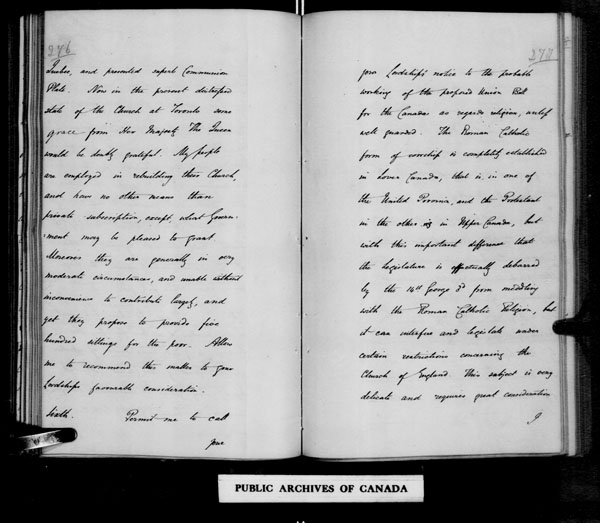 276
Quebec, and presented superb Communion
Plate. Now in the present distressed
state of the Church at Toronto some
grace from Her Majesty The Queen
would be doubly grateful. My people
are employed in rebuilding their Church,
and have no other means than
private subscription, except, what Govern-
-ment may be pleased to grant
Moreover they are generally in very
moderate circumstances, and unable without
inconvenience to contribute largely, and
yet they propose to provide five
hundred sittings for the poor. Allow
me to recommend this matter to your
Lordships favourable consideration.
Sixth. Permit me to call
your
277
your Lordship's notice to the probable
working of the proposed Union Bill
for the Canadas as regards religion, unless
well guarded. The Roman Catholic
form of worship is completely established
in Lower Canada, that is, in one of
the United Provinces, and the Protestant
in the other viz in Upper Canada, but
with this important difference that
the Legislature is effectually debarred
by the 14th George 3d from meddling
with the Roman Catholic Religion, but
it can interfere and legislate under
certain restrictions concerning the
Church of England. This subject is very
delicate and requires great consideration
I
PUBLIC ARCHIVES OF CANADA